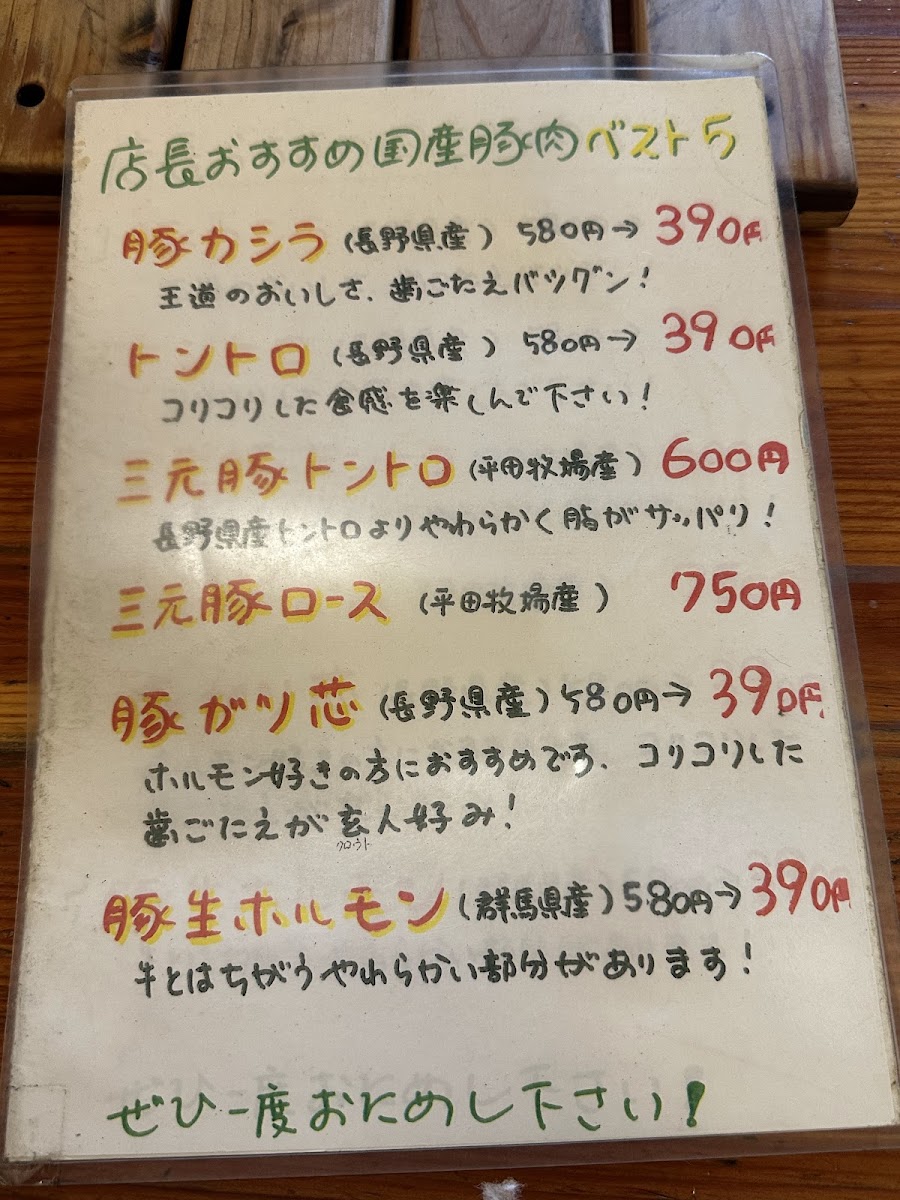 店長おすすめ国産豚肉ベスト5
豚カシラ(長野県産) 580円→390円
王道のおいしさ、歯ごたえバツグン!
トントロ(長野県産) 580円→390円
コリコリした食感を楽しんで下さい!
三元豚トントロ(平田牧場産) 600円
長野県産トントロよりやわらかく脂がサッパリ!
三元豚ロース(平田牧場産) 750円
豚ガツ芯(長野県産)580円→390円
ホルモン好きの方におすすめです、コリコリした
歯ごたえが玄人好み!
クロウト
豚生ホルモン(群馬県産)580円→390円
牛とはちがうやわらかい部分があります!
ぜひ一度おためし下さい!